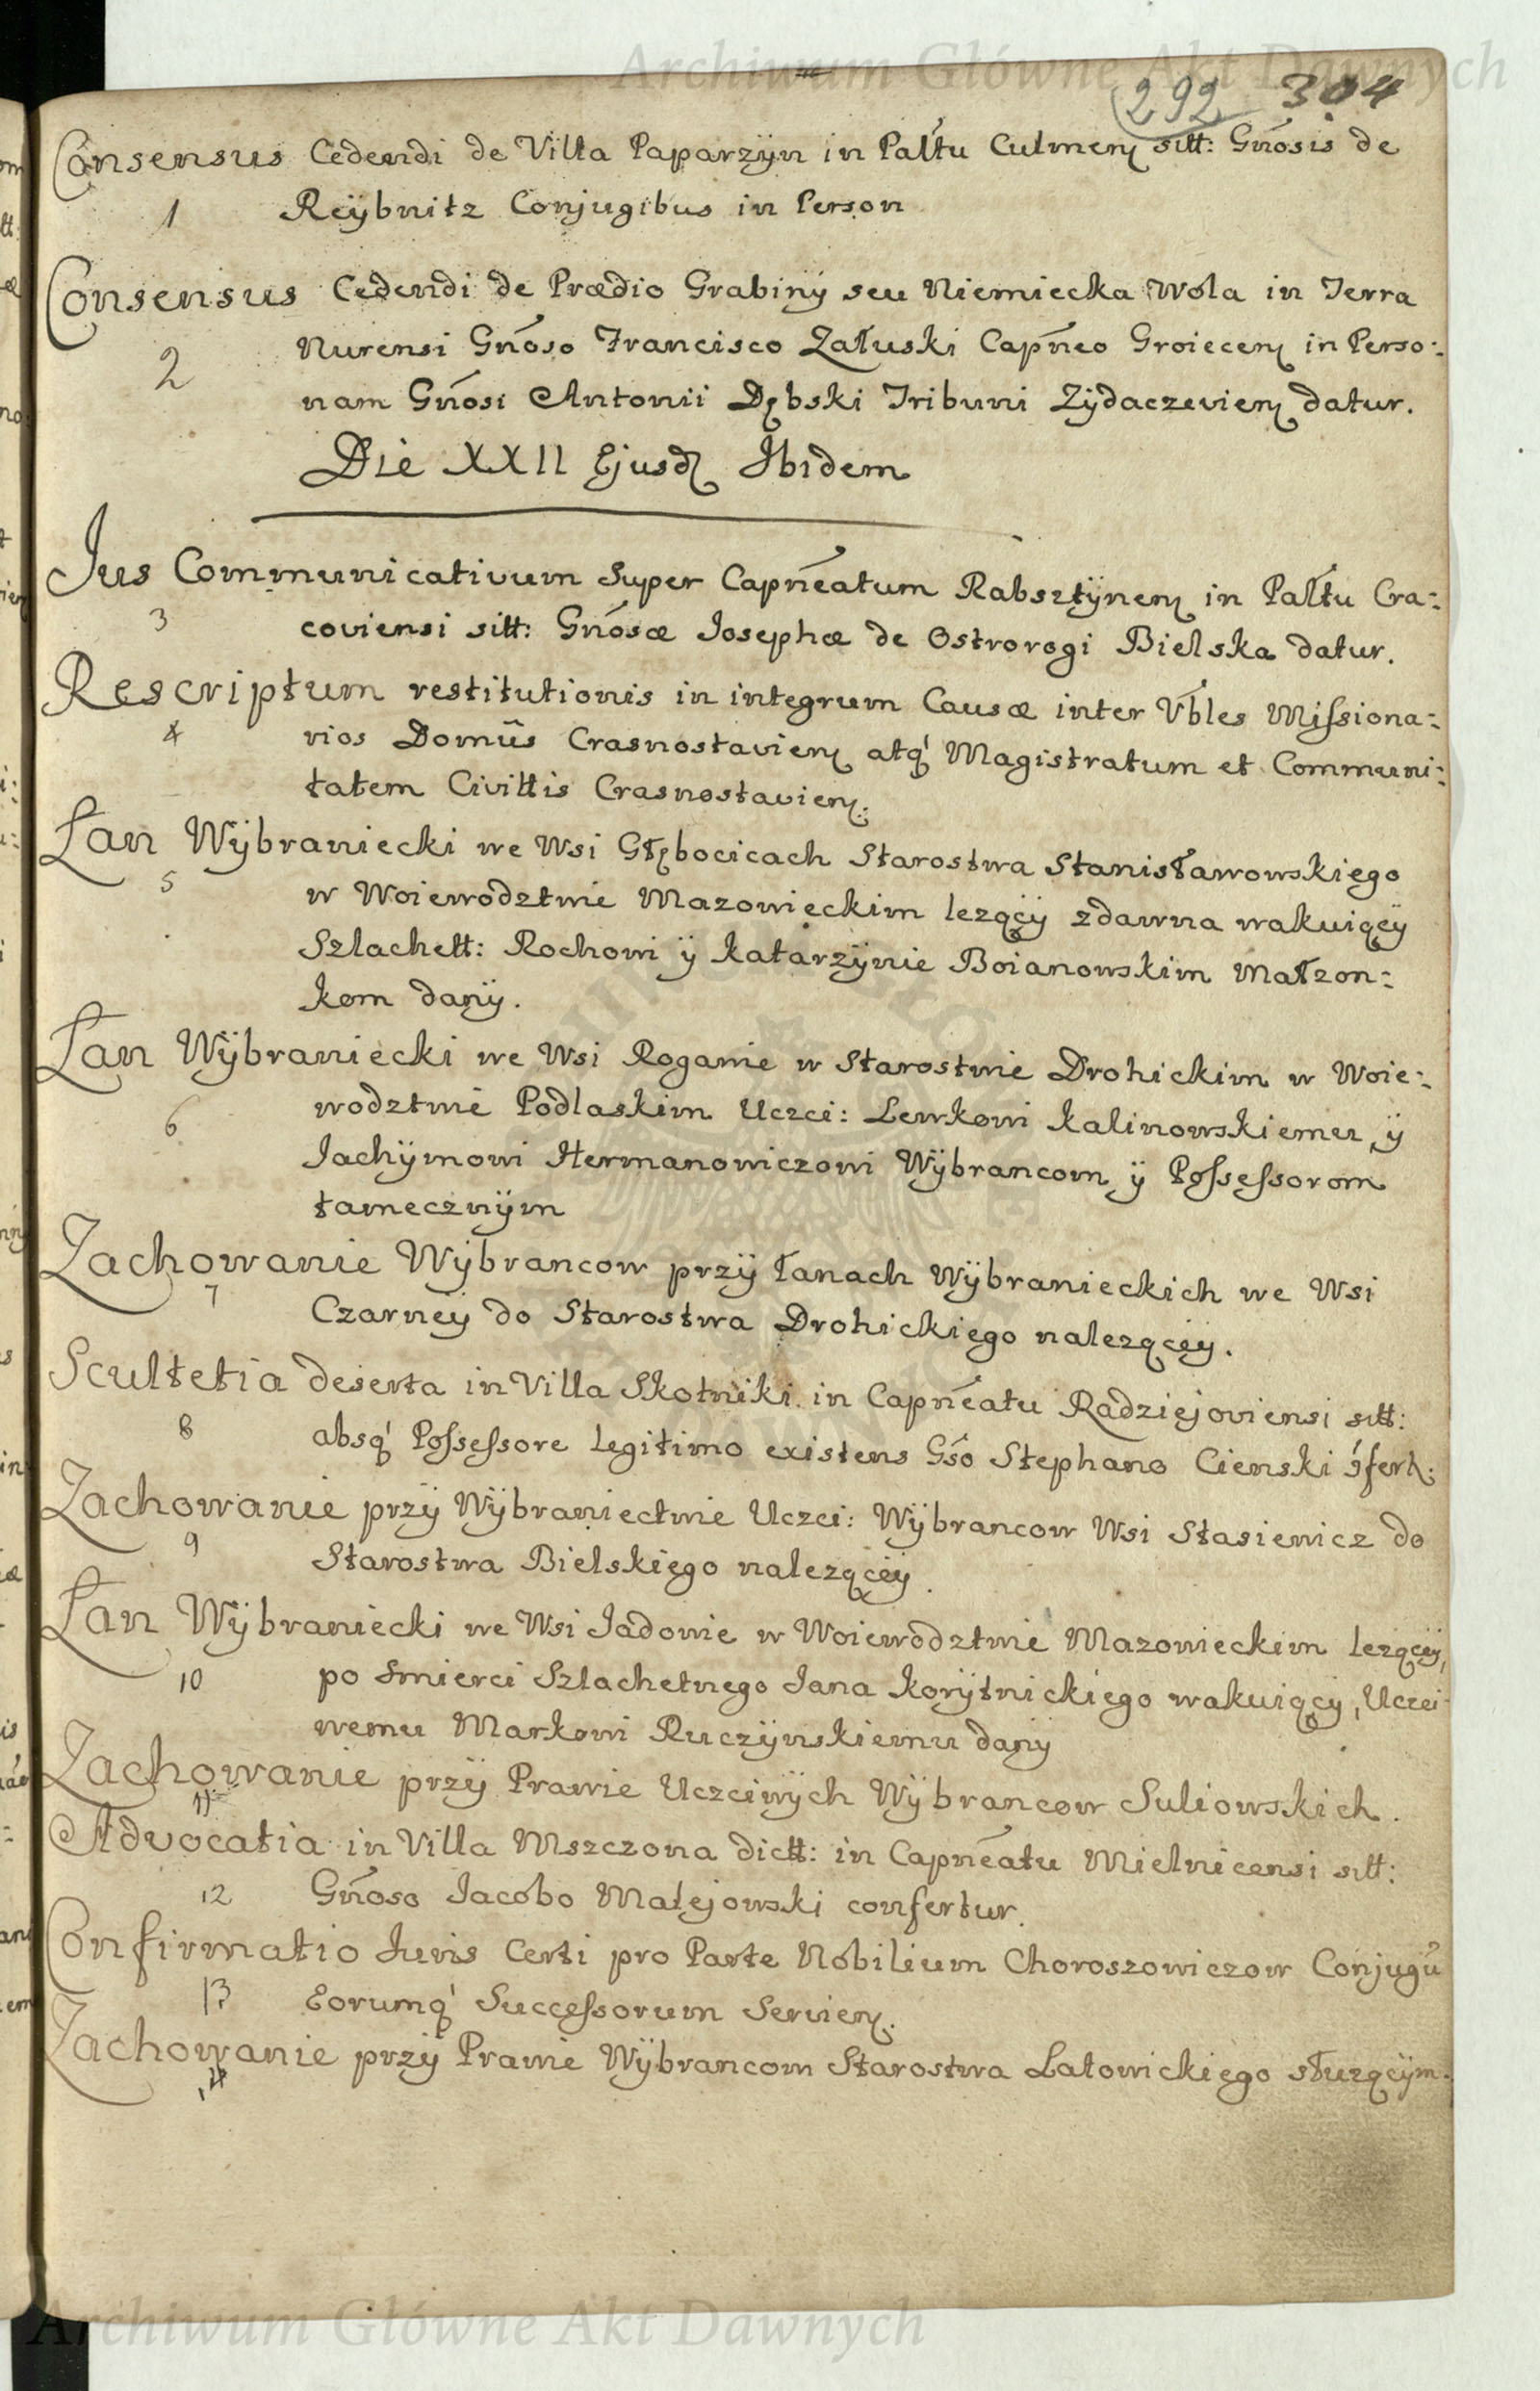 Archiwum Główne Akt Dawnych
292 304
Consensus Cedendi de Villa Paparzÿn in Pałtu Culmen sitt: Gn̄osis de
1 Reÿbnitz Conjugibus in Person
Consensus Cedendi de Prædio Grabinÿ seu Niemiecka Wola in Terra
2 Nurensi Gn̄oso Francisco Załuski Capn̄eo Groiecen in Perso:
nam Gn̄osi Antonii Dębski Tribuni Zÿdaczevien datur.
Die XXII Ejusd Ibidem
Jus Communicativum super Capn̄eatum Rabsztÿnen in Pałtu Cra:
3 coviensi sitt: Gn̄osæ Josephæ de Ostrorogi Bielska datur.
Rescriptum restitutionis in integrum Causæ inter Vbles Missiona:
4 rios Domûs Crasnostavien atq' Magistratum et Communi:
tatem Civittis Crasnostavien.
Łan Wÿbraniecki we Wsi Głębocicach Starostwa Stanisławowskiego
5 w Woiewodztwie Mazowieckim lezącÿ zdawna wakuiącÿ
Szlachett: Rochowi ÿ Katarzÿnie Boianowskim Małzon:
kom danÿ.
Łan Wÿbraniecki we Wsi Rogawie w Starostwie Drohickim w Woie:
6 wodztwie Podlaskim Uczci: Lewkowi Kalinowskiemu ÿ
Jachÿmowi Hermanowiczowi Wÿbrancom ÿ Possessorom
tamecznÿm
Zachowanie Wÿbrancow przÿ łanach Wÿbranieckich we Wsi
7 Czarneÿ do Starostwa Drohickiego nalezącéÿ.
Scultetia deserta in Villa Skotniki in Capn̄eatu Radziejoviensi sitt:
8 absq' Possessore legitimo existens Gso Stephano Cienski
Zachowanie przÿ Wÿbraniectwie Uczci: Wÿbrancow Wsi Stasiewicz do
9 Starostwa Bielskiego nalezącéÿ.
Łan Wÿbraniecki we Wsi Jadowie w Woiewodztwie Mazowieckim lezącéÿ,
10 po smierci Szlachetnego Jana Korÿtnickiego wakuiącÿ, Uczci
wemu Markowi Ruczÿnskiemu danÿ
Zachowanie przÿ Prawie Uczciwÿch Wÿbrancow Suliowskich.
11
Advocatia in Villa Mszczona dictt: in Capn̄eatu Mielnicensi sitt:
12 Gn̄oso Jacobo Matejowski confertur.
Confirmatio Juris Certi pro Parte Nobilium Choroszowiczow Conjugū
13 Eorumq' Successorum Servien.
Zachowanie przÿ Prawie Wÿbrancom Starostwa Latowickiego słuzącÿm.
14
Archiwum Główne Akt Dawnych